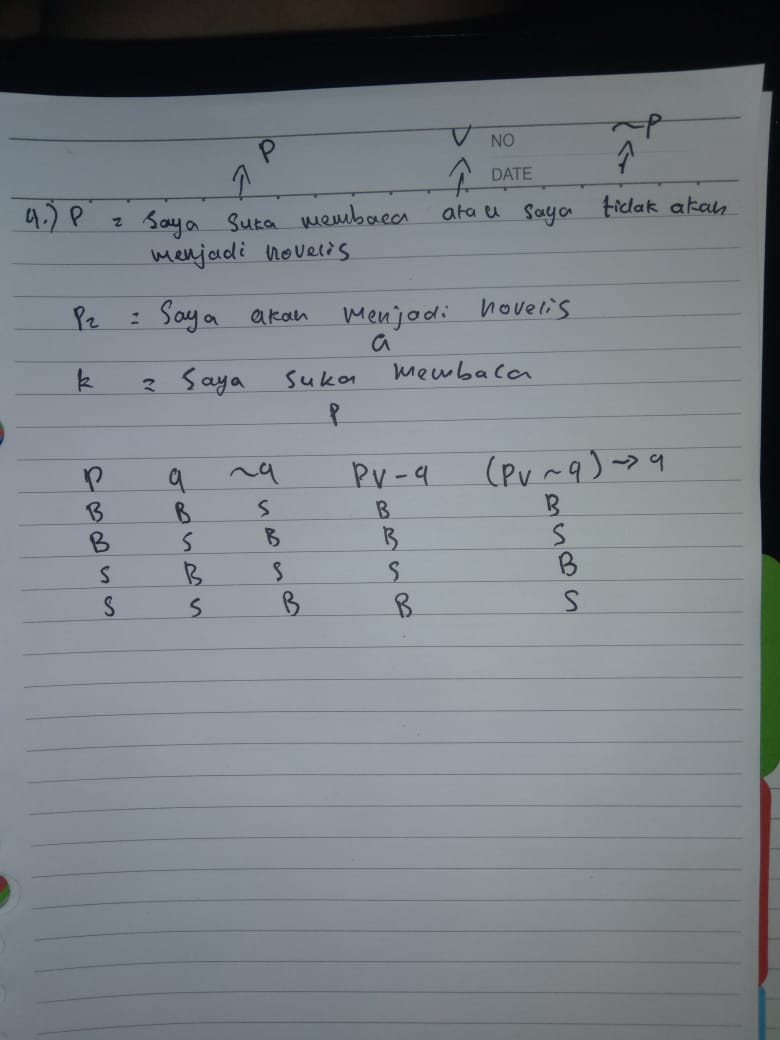 P V NO ~P
DATE
9.) P = Saya suka membaca atau saya tidak akan
menjadi novelis
P2 = Saya akan menjadi novelis
a
k = Saya suka membaca
P
P q ~q PV-q (PV~q)→q
B B S B B
B S B B S
S B S S B
S S B B S